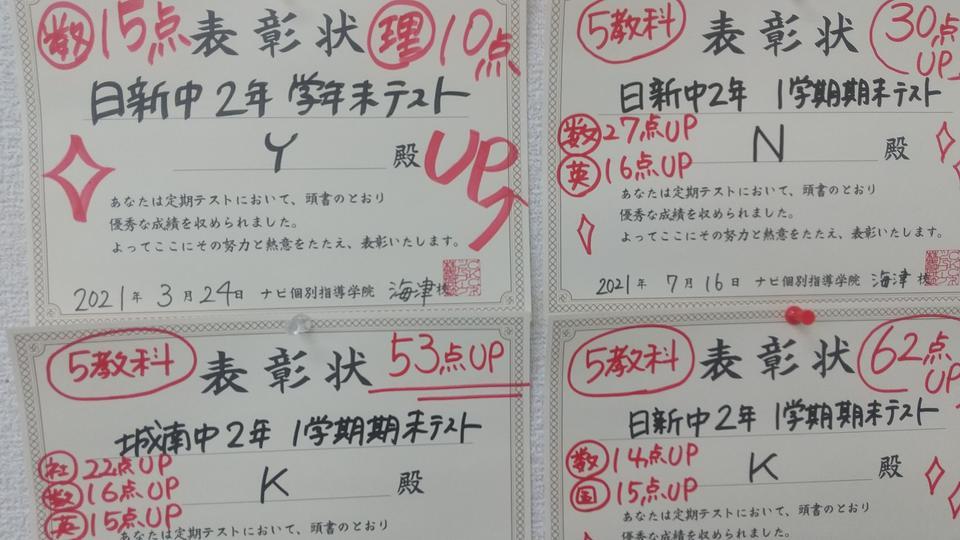 数 15点 表彰状 理 10点
日新中2年 学年末テスト
Y 殿 UP
あなたは定期テストにおいて、頭書のとおり
優秀な成績を収められました。
よってここにその努力と熱意をたたえ、表彰いたします。
2021年 3月 24日 ナビ個別指導学院 海津校
5教科 表彰状 30点UP
日新中2年 1学期期末テスト
数 27点UP
英 16点UP
N 殿
あなたは定期テストにおいて、頭書のとおり
優秀な成績を収められました。
よってここにその努力と熱意をたたえ、表彰いたします。
2021年 7月 16日 ナビ個別指導学院 海津
5教科 表彰状 53点UP
城南中2年 1学期期末テスト
社 22点UP
数 16点UP
英 15点UP
K 殿
あなたは定期テストにおいて、頭書のとおり
5教科 表彰状 62点UP
日新中2年 1学期期末テスト
数 14点UP
国 15点UP
K 殿
あなたは定期テストにおいて、頭書のとおり
優秀な成績を収められました。